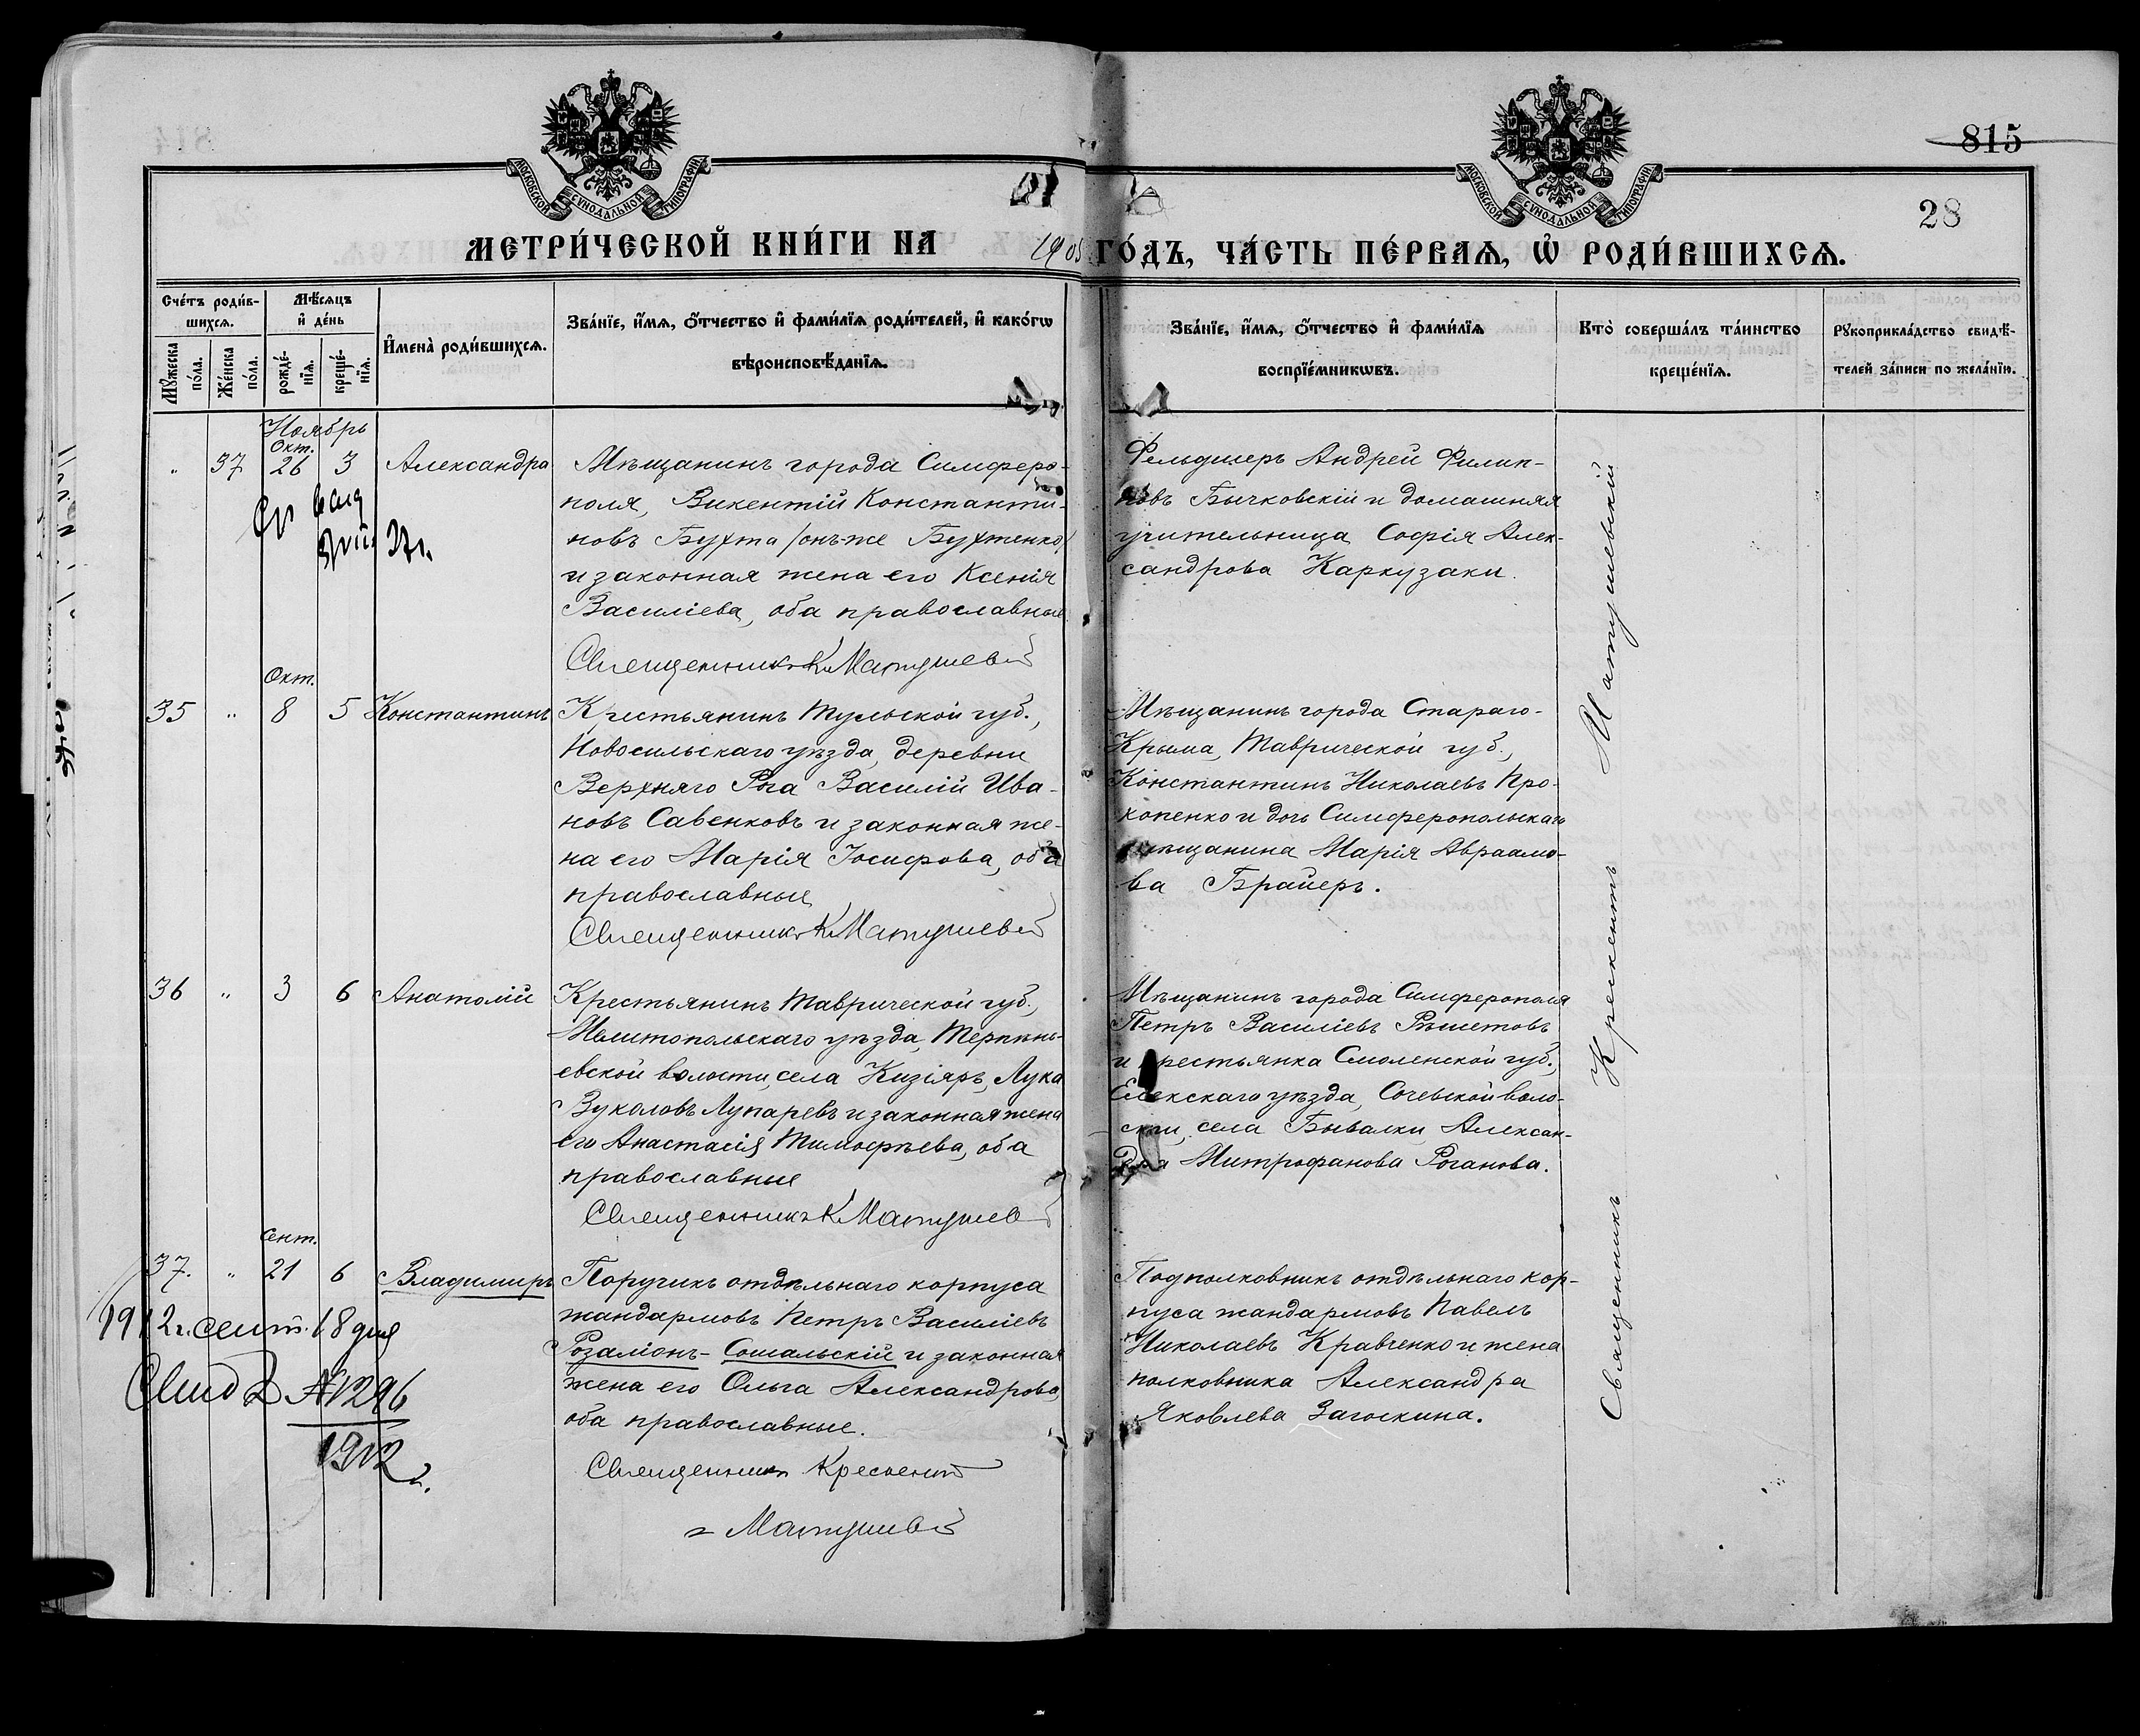 815
28
МОСКОВСКОЙ СѴНОДАЛЬНОЙ ТИПОГРАФІИ
МОСКОВСКОЙ СѴНОДАЛЬНОЙ ТИПОГРАФІИ
МЕТРИ́ЧЕСКОЙ КНИ́ГИ НА 1905 ГО́ДЪ, ЧА́СТЬ ПЕ́РВАѦ, Ѡ҆ РОДИ́ВШИХСѦ.
Сче́тъ роди́в-
шихсѧ.
Мꙋ́жеска по́ла.
Же́нска по́ла.
Мѣ́сѧцъ
и҆ де́нь
рожде́-
нїѧ.
креще́-
нїѧ.
И҆мена̀ роди́вшихсѧ.
Зва́нїе, и҆́мѧ, ѻ҆́тчество и҆ фами́лїѧ роди́телей, и҆ како́гѡ
вѣроисповѣ́данїѧ.
Зва́нїе, и҆́мѧ, ѻ҆́тчество и҆ фами́лїѧ
воспрїе́мникѡвъ.
Кто̀ соверша́лъ та́инство
креще́нїѧ.
Рꙋкоприкла́дство свидѣ́-
телей за́писи по жела́нїю.
Ноябрь
Окт.
" 37 26 3 Александра
Мѣщанинъ города Симферо-
поля, Викентій Константи-
новъ Бухта /онъ-же Бухтенко/
и законная жена его Ксенія
Василіева, оба православные
Священникъ К. Матушев
Фельдшеръ Андрей Филип-
повъ Бычковскій и домашняя
учительница Софія Алек-
сандрова Каркузаки.
Окт.
35 " 8 5 Константинъ
Крестьянинъ Тульской губ.,
Новосильскаго уѣзда, деревни
Верхняго Рога Василій Ива-
новъ Савенковъ и законная же-
на его Марія Іосифова, оба
православные
Священникъ К. Матушев
Мѣщанинъ города Стараго-
Крыма, Таврической губ.,
Константинъ Николаевъ Про-
копенко и дочь Симферопольскаго
мѣщанина Марія Авраамо-
ва Брайеръ.
36 " 3 6 Анатолій
Крестьянинъ Таврической губ.,
Мелитопольскаго уѣзда, Терпѣнь-
евской волости, села Кизіяръ, Лука
Вуколовъ Лупаревъ и законная жена
его Анастасія Тимофѣева, оба
православные
Священникъ К. Матушев
Мѣщанинъ города Симферополя
Петръ Василіевъ Рѣшетовъ
и крестьянка Смоленской губ.,
уѣзда, воло-
сти, села Бывалки Алексан-
дра Митрофанова Роганова.
Сент.
37. " 21 6 Владимиръ
Поручикъ отдѣльнаго корпуса
жандармовъ Петръ Василіевъ
Розаліонъ-Сошальскій и законная
жена его Ольга Александрова,
оба православные.
Священникъ Крескент
Матушев
Подполковникъ отдѣльнаго кор-
пуса жандармовъ Павелъ
Николаевъ Кравченко и жена
полковника Александра
Яковлева Загоскина.
1912 г. сент. 18 дня
Свид №1296
1912 г.
Священникъ Крескентъ Матушевскій